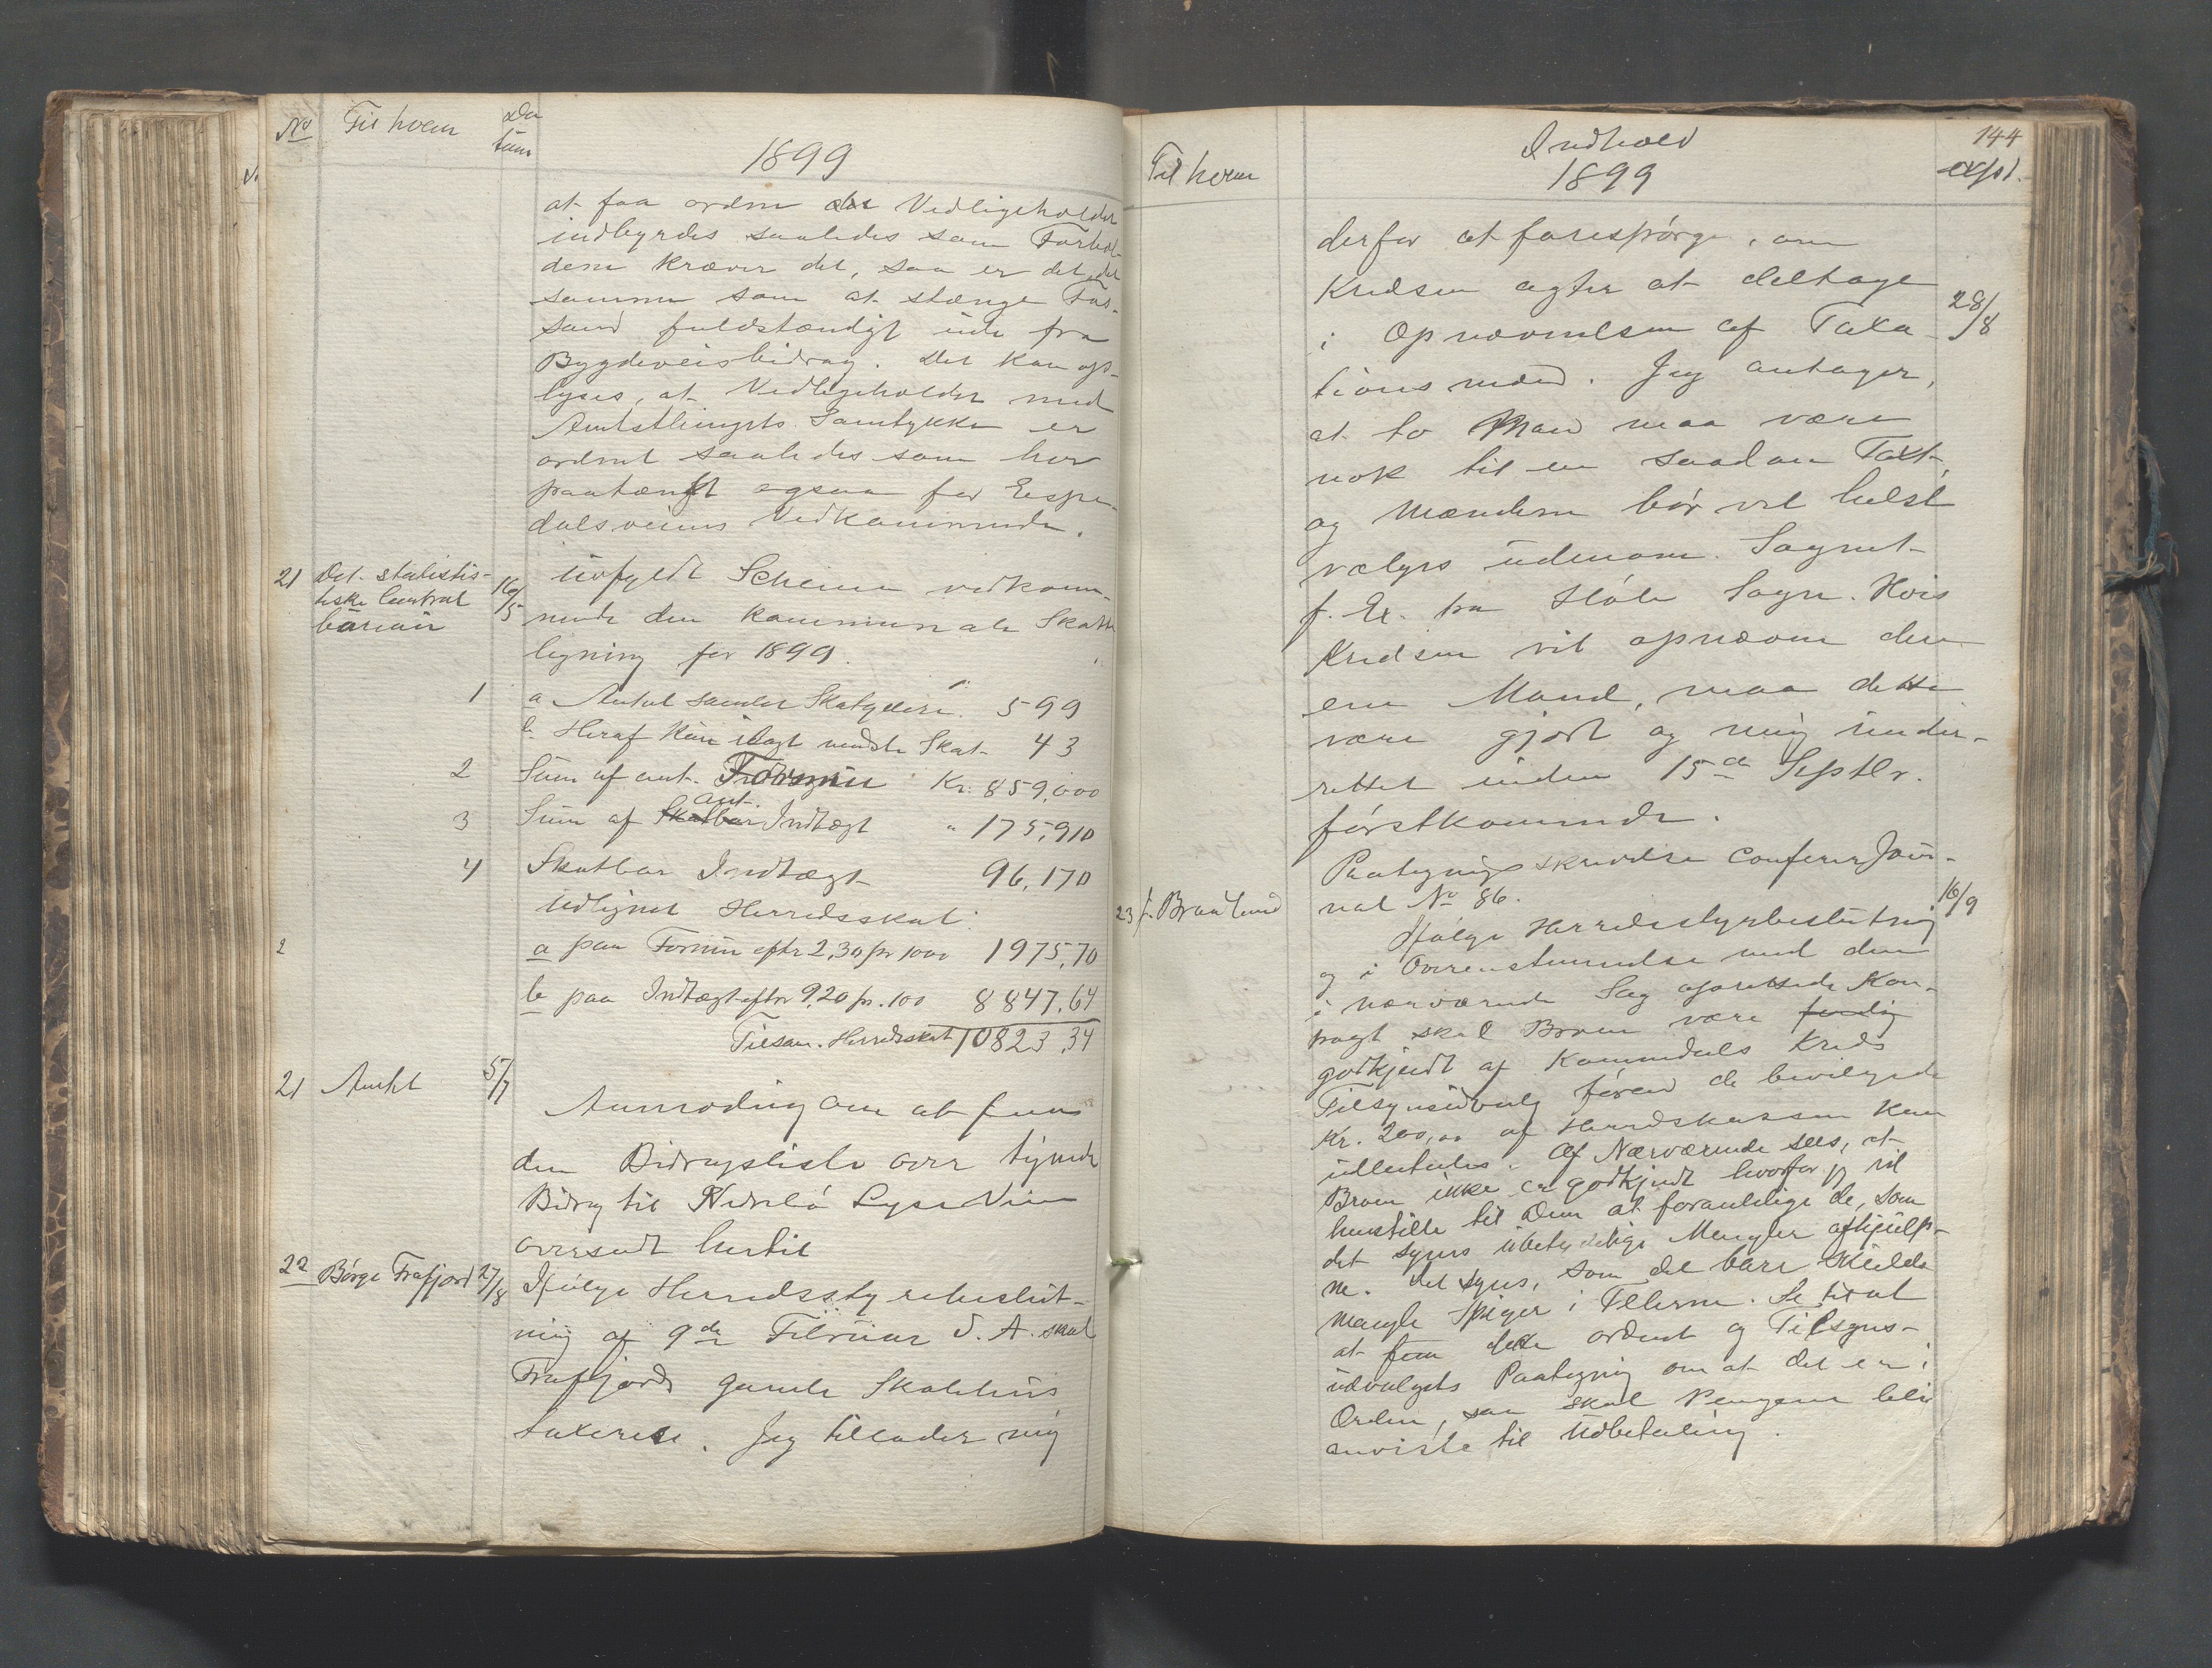 No Til hvem Da
tum
1899
at faa ordne der Vedligeholdet
indbyrdes saaledes som Forhol-
dene kræver det, saa er det det
samme som at stænge Fos-
sand fuldstændigt ude fra
Bygdeveisbidrag. Det kan op-
lyses, at Vedligeholdet med
Amtsthingets Samtykke er
ordnet saaledes som her
paatænkt ogsaa for Espe-
dalsveiens Vedkommende.
21 Det statistis- 16/5 Udfyldt Schema vedkom-
tiske Central mende den kommunale Skatte
bureau ligning for 1899.
1 a Antal samlet Skatydere. 599
b Heraf kun ilagt mindste Skat 43
2 Sum af ant. Formue Kr. 859,000
3 Sum af Skatbar ant. Indtægt " 175,910
4 Skatbar Indtægt 96,170
Udlignet Herredsskat:
2 a paa Formue efter 2,30 pr 1000 1975,70
b paa Indtægt efter 9,20 pr. 100 8847,64
Tilsam. Herredsskat 10823,34
21 Amtet 5/7
Anmodning om at faa
den Bidragsliste over tynde
Bidrag til Lyse Veien
oversendt hertil
22 Børge Frafjord 27/8 Ifølge Herredsstyrebeslut-
ning af 9de Februar d. A. skal
Frafjords gamle Skolehus
taxeres. Jeg tillader mig
Til hvem
Indhold
1899
144
expd.
derfor at forespørge, om
Kredsen agter at deltage
i Opnævnelsen af Taxa- 28/8
tionsmænd. Jeg antager,
at to Mand maa være
nok til en saadan Taxt,
og Mændene bør vel helst
vælges udenom Sognet
f. Ex. fra Høle Sogn. Hvis
Kredsen vil opnævne den
ene Mand, maa dette
være gjort og mig under-
rettet inden 15de Septbr.
førstkommende.
Paategningsskrivelse Conferer Jour-
23 f. Braatund nal No 86. 16/9
Ifølge Herredsstyrbeslutning
og i Overenstemmelse med den
i nærværende Sag oprettede Kon-
tragt skal Broen være færdig
godkjendt af Kommedals Kreds
Tilsynsudvalg førend de bevilgede
Kr. 200,00 af Herredskassen kan
udbetales. Af Nærværende sees, at
Broen ikke er godkjendt hvorfor jeg vil
henstille til Dem at foranledige de, som
det synes ubetydelige Mangler afhjulp-
ne. Det synes, som det bare skulde
mangle Spiger i Tilerne. Se til at
at faa dette ordnet og Tilsyns-
udvalgets Paategning om at det er i
Orden, saa skal Pengene bliv
anviste til Udbetaling.